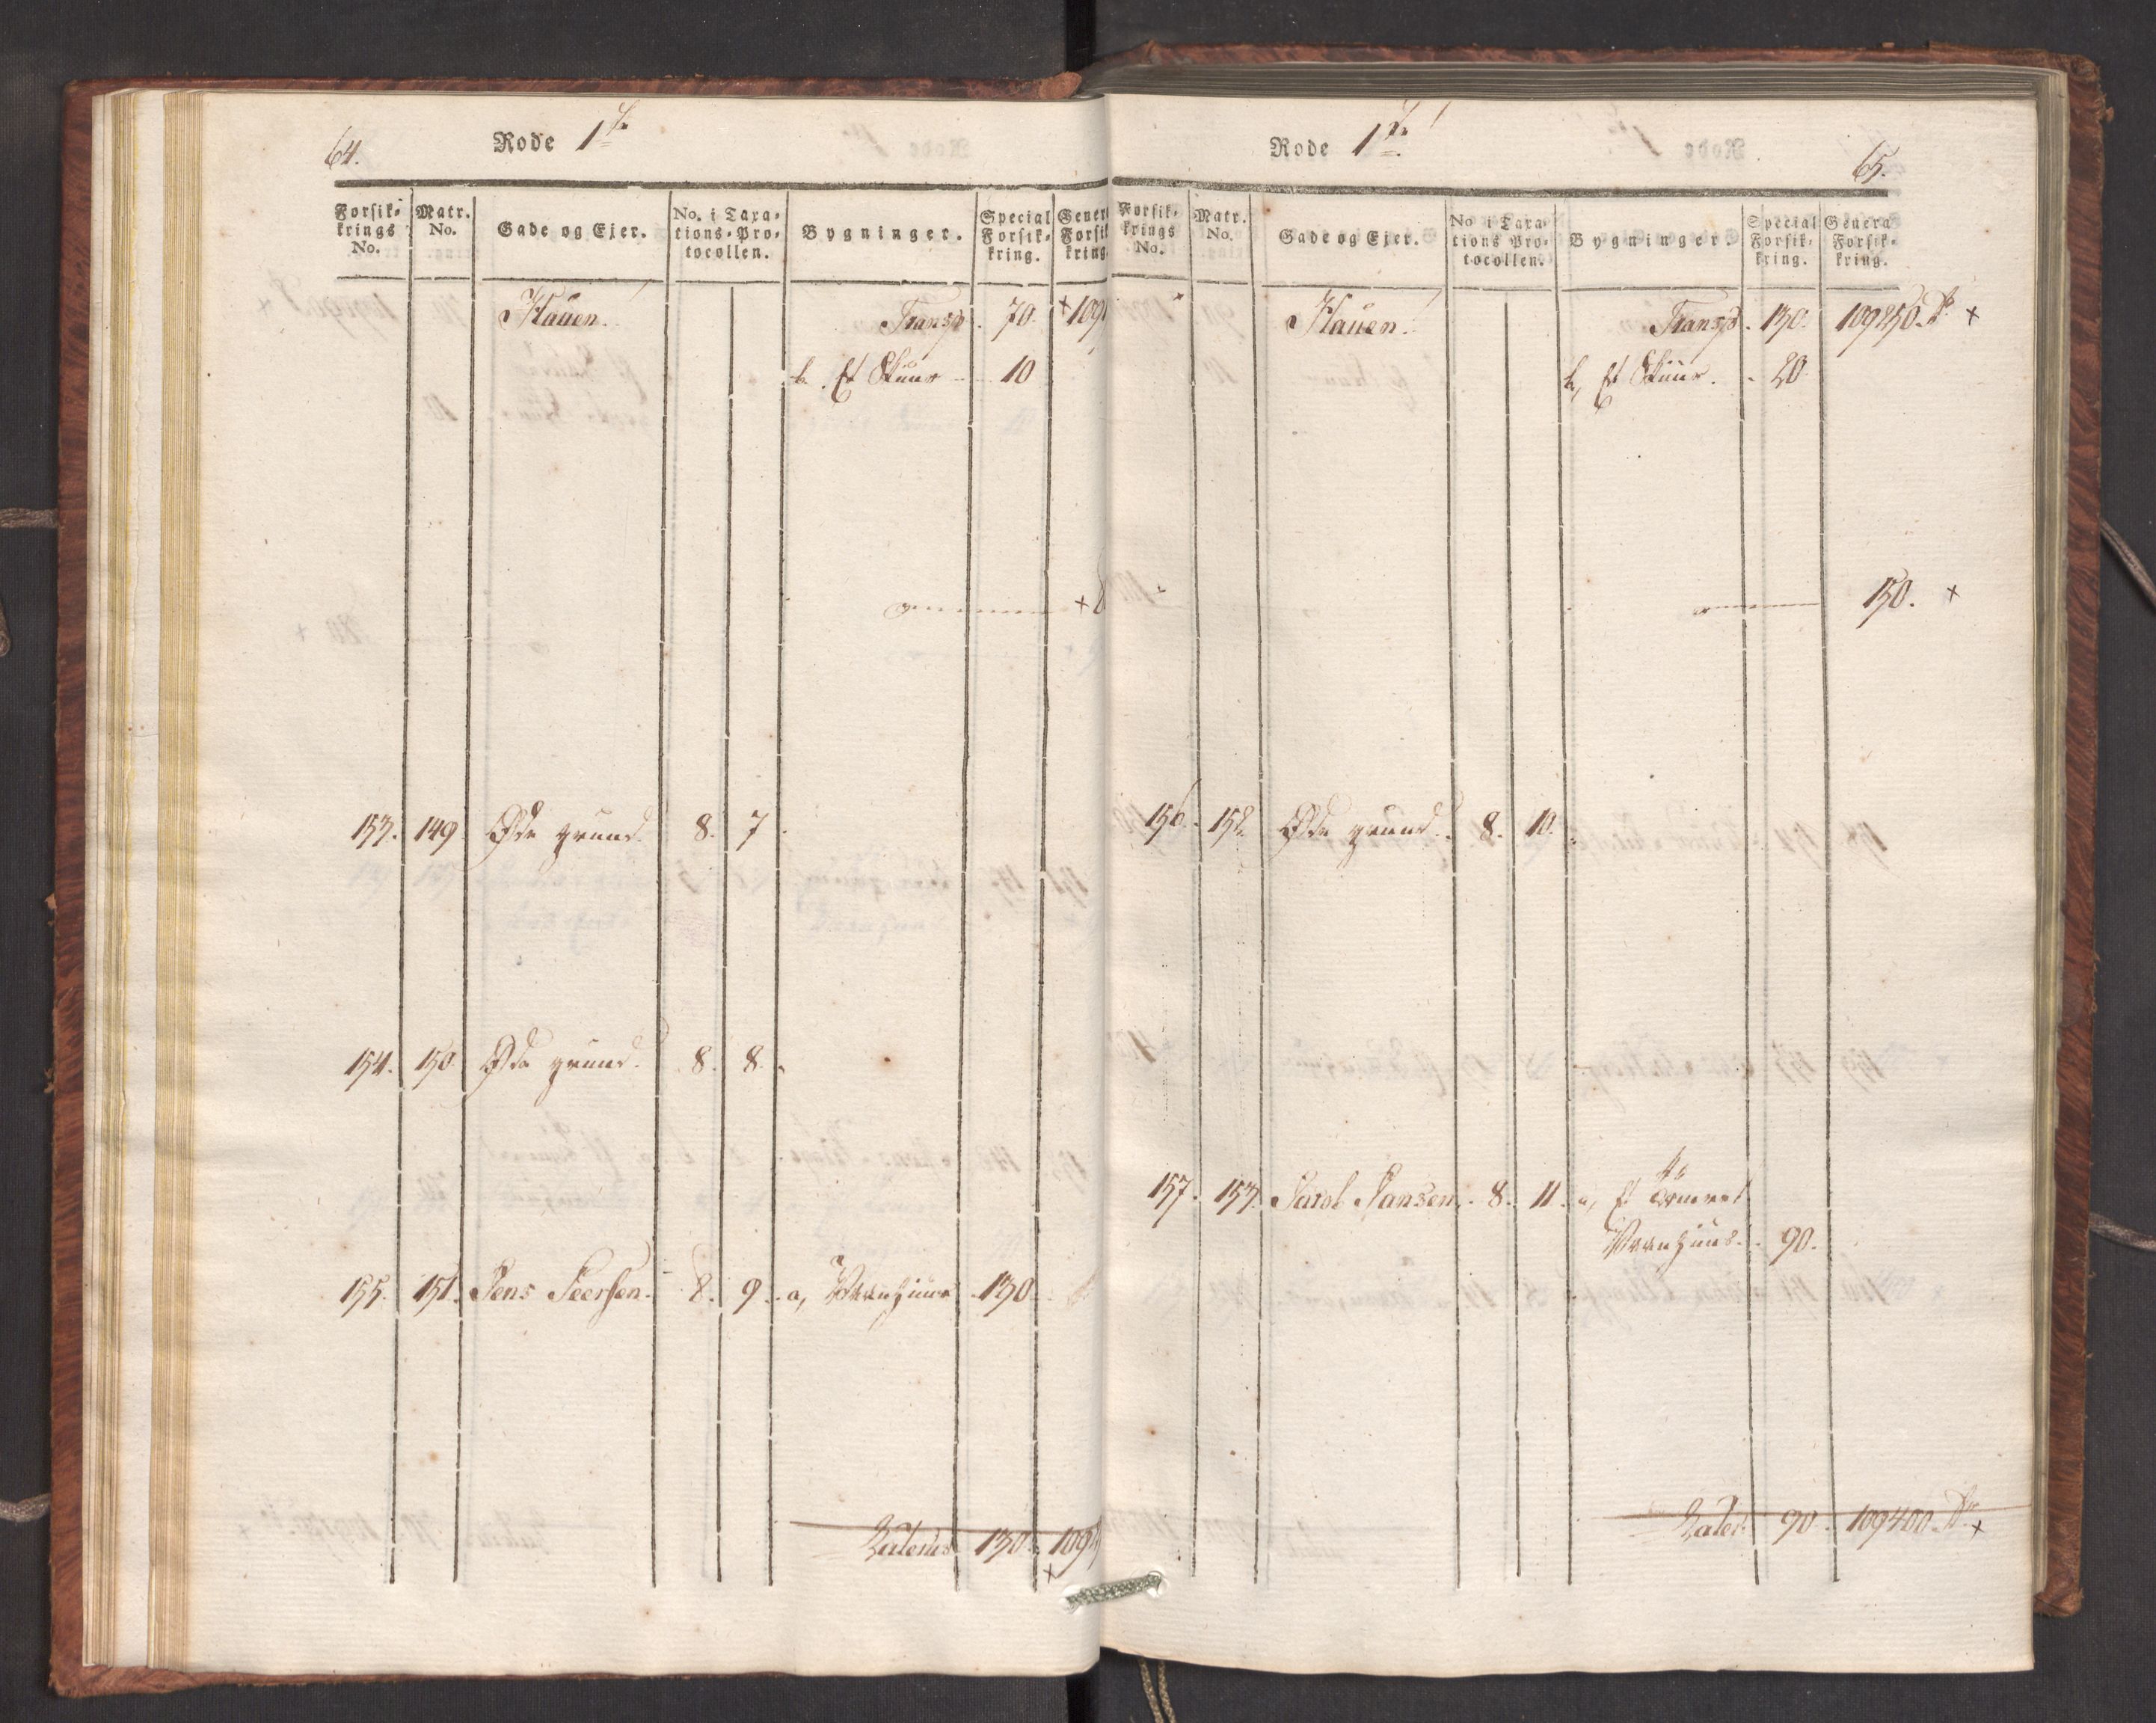 64.
Rode 1ste
Forsik-
krings
No.
Matr.
No.
Gade og Ejer.
No. i Taxa-
tions-Pro-
tocollen.
Bygninger.
Special
Forsik-
kring.
Gener
Forsik
kring
Hauen.
Transp. 70. + 109
b. Et Skuur 10
+ 8
153. 149. Øde grund. 8. 7.
154. 150. Øde grund. 8. 8.
155. 151. Jens Peersen. 8. 9. a, Vaanhuus 130.
Lateris 130. 109
+
Rode 1ste
65.
Forsik-
krings
No.
Matr.
No.
Gade og Ejer.
No i Taxa-
tions Pro-
tocollen.
Bygninger.
Special
Forsik-
kring.
Genera
Forsik-
kring.
Hauen.
Transp. 130. 109250 +
b, Et Skuur. 20
150. +
156. 152. Øde grund. 8. 10.
157. 153. Jacob Hansen. 8. 11. a, Et Tømret
Vaanhuus. 90.
Later: 90. 109400 +